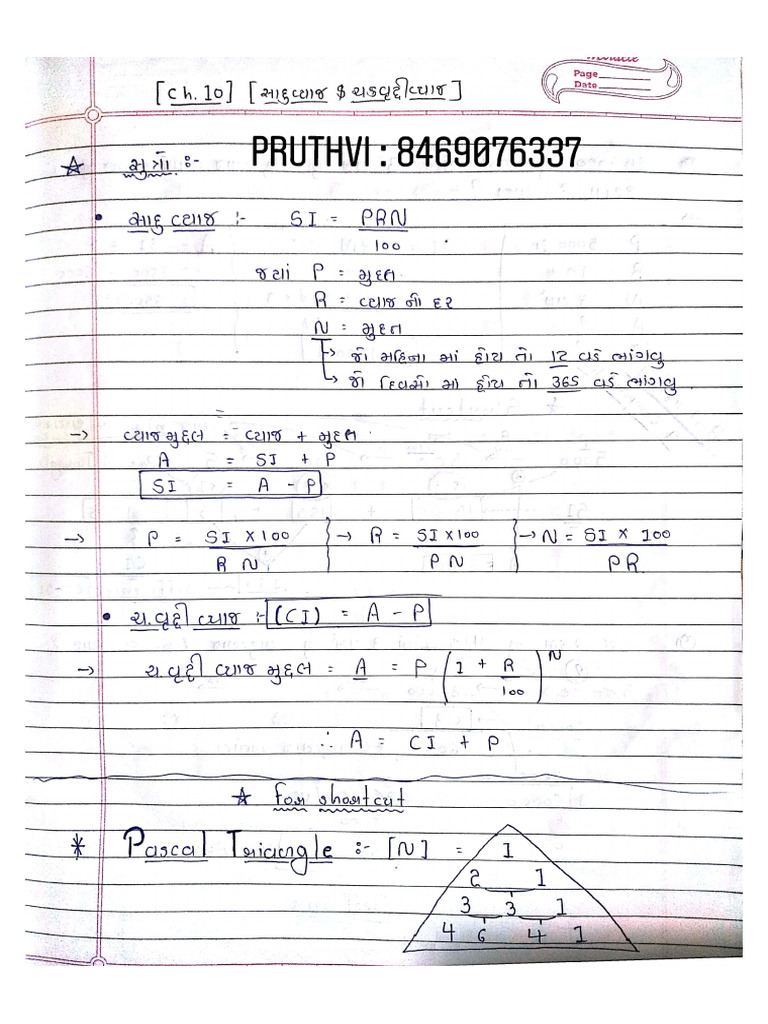 Miracle
Page
Date
[Ch. 10] [સાદુવ્યાજ & ચક્રવૃદ્દીવ્યાજ]
PRUTHVI : 8469076337
☆ સુત્રો :-
• સાદુ વ્યાજ :- SI = PRN
100
જયાં P = મુદ્દલ
R = વ્યાજ નો દર
N = મુદ્દત
→ જો મહિના માં હોય તો 12 વડે ભાંગવુ
→ જો દિવસો માં હોય તો 365 વડે ભાંગવુ
→ વ્યાજમુદ્દલ = વ્યાજ + મુદ્દલ
A = SI + P
SI = A - P
→ P = SI X 100 → R = SI X 100 → N = SI X 100
R N P N PR
• ચ.વૃદ્દી વ્યાજ :- (CI) = A - P
→ ચ.વૃદ્દી વ્યાજ મુદ્દલ = A = P (1 + R)^N
100
∴ A = CI + P
☆ For shortcut
* Pascal Triangle :- [N] = 1
2 1
3 3 1
4 6 4 1